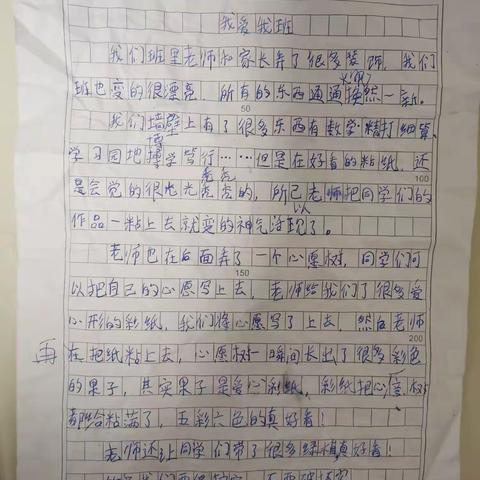 我爱我班
我们班里老师和家长弄了很多装饰，我们
班也变的很漂亮，所有的东西通通焕然一新。
50
我们墙壁上有了很多东西有数学精打细算，
学习园地博学笃行……但是在好看的粘纸，还
100
是会觉的很光光秃秃的，所以老师把同学们的
作品一粘上去就变的神气活现了。
老师也在后面弄了一个心愿树，同学们可
150
以把自己的心愿写上去，老师给我们了很多爱
心形的彩纸，我们将心愿写了上去，然后老师
200
再在把纸粘上去，心愿树一瞬间长出了很多彩色
的果子，其实果子是爱心彩纸，彩纸把心愿树
都给粘满了，五彩六色的真好看！
老师还让同学们带了很多绿植真好看！